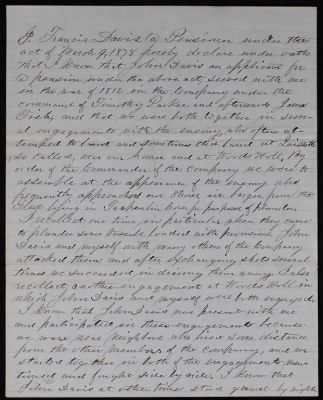 I, Francis Davis a Pensioner under the
act of March 9, 1878 freely declare under oath
that I know that John Davis an applicant for
a pension under the above act, served with me
in the war of 1812 in the Company under the
command of Timothy Parker and afterward James
Fish, and that we were both together in sever-
al engagements with the enemy, who often at-
tempted to land and sometimes did land at
so called, near our house and at Woods Holl, By
order of the Commander of the Company we were to
assemble at the appearance of the Enemy who
frequently approached our shore in barges from the
lying in Tarpaulin Cove for purposes of plunder
I recollect one time in particular when they came
to plunder some Vessels loaded with provisions John
Davis and myself with many others of the Company
attacked them and after exchanging shots several
times we succeeded in driving them away. I also
recollect another engagement at Woods Holl in
which John Davis and myself were both engaged.
I know that John Davis was present with me
and participated in these engagements because
we were near Neighbors who lived some distance
from the other Members of the company, and we
started together in both of the engagements men-
tioned and fought side by side. I know that
John Davis at other times stood guard by night